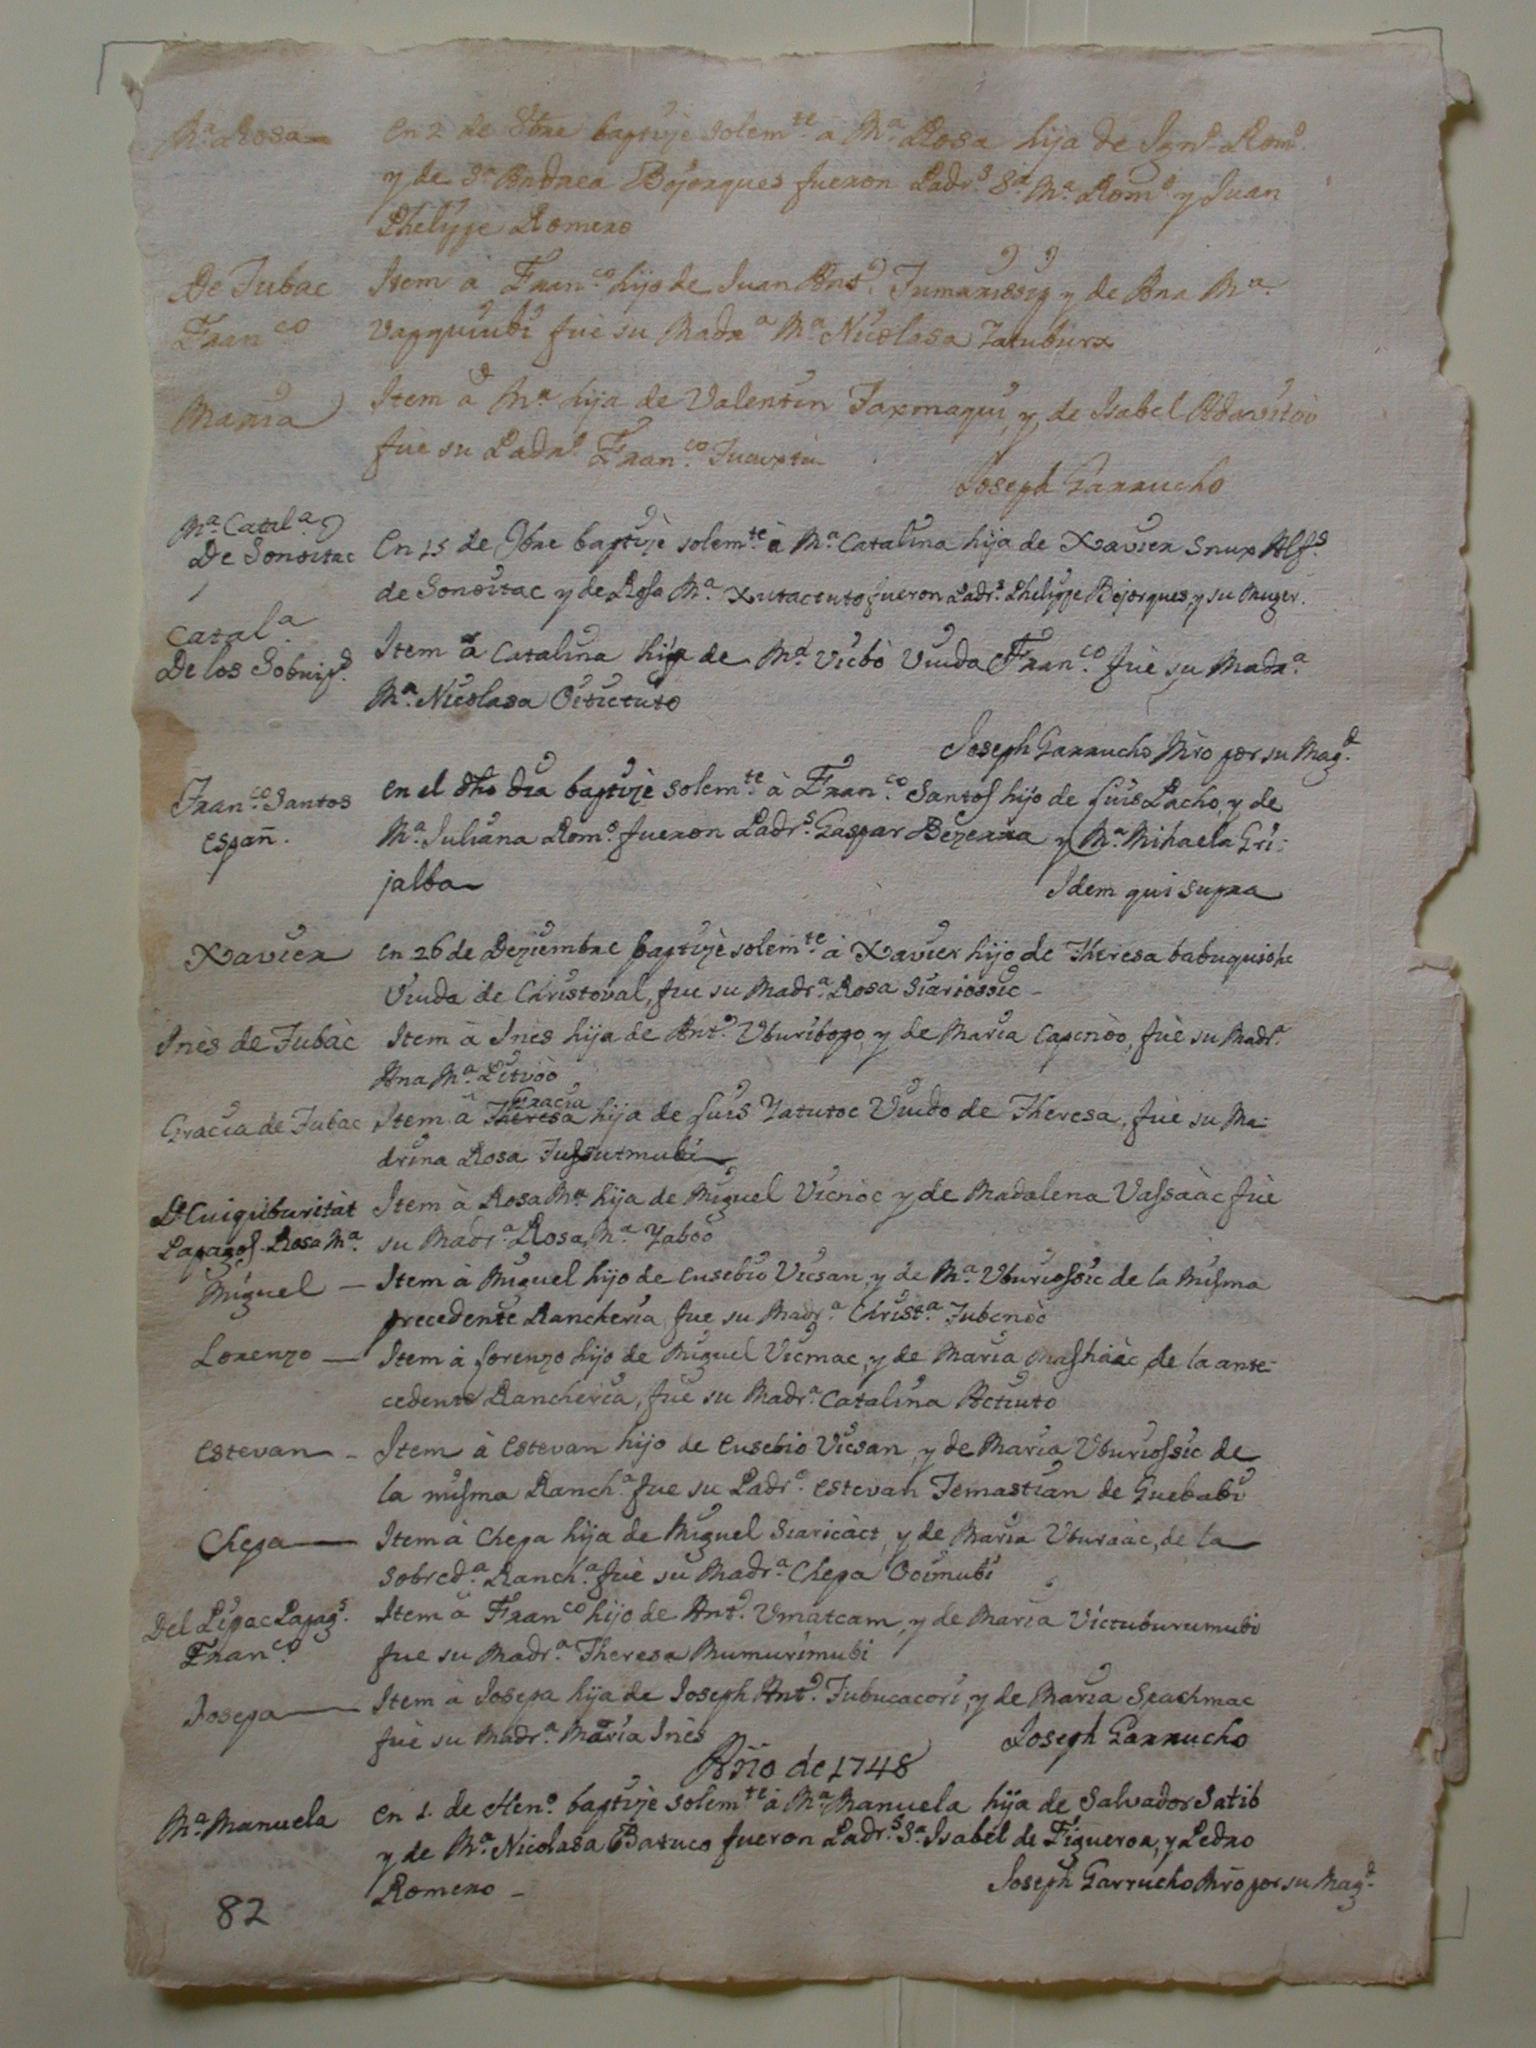 Mª Rosa — En 2 de 8bre baptizè solemte à Mª Rosa hija de Ignº Romº
y de Dª Andrea Bojorques fueron Padrs Dª Mª Romº y Juan
Phelippe Romero
De Tubac Item à Franco hijo de Juan Antº y de Ana Mª
Franco fuè su Madrª Mª Nicolasa Tatuburx
Maria Item à Mª hija de Valentin Taxmaqui, y de Isabel
fuè su Padrº Franco
Joseph Garrucho
Mª Catalª
De Sonoitac En 15 de 9bre baptizè solemte à Mª Catalina hija de Xavier Snux
de Sonoitac y de Rosa Mª Xutactuto fueron Padrs Phelippe Bojorques, y su Muger.
Catalª
De los Item à Catalina hija de Mª Vicbò Viuda Franco fuè su Madrª
Mª Nicolasa Oitictuto
Joseph Garrucho Mrò por su Magd
Franco Santos En el dho dia baptizè solemte à Franco Santos hijo de Luis Pacho, y de
Españ. Mª Juliana Romº fueron Padrs Gaspar Bezerra y Mª Mihaela Gri-
jalba — Idem qui supra
Xavier En 26 de Deziembre baptizè solemte à Xavier hijo de Theresa babuquiohc
Viuda de Christoval, fue su Madrª Rosa Siariossic —
Inès de Tubàc Item à Inès hija de Antº Uburibopo, y de Maria Capcnòo, fuè su Madrª
Ana Mª Pitvòò
Gracia
Gracia de Tubac Item à Theresa hija de Luis Yatutoc Viudo de Theresa, fuè su Ma-
drina Rosa Tussutmubi —
De Cuiquiburitàt Item à Rosa Mª hija de Miguel Vicnòc y de Madalena Vassaàc fuè
Papagos Rosa Mª su Madrª Rosa Mª Yaboò
Miguel — Item à Miguel hijo de Eusebio Vicsan, y de Mª Uburiossic de la Misma
precedente Rancheria fue su Madrª Christª Tubcnòo
Lorenzo — Item à Lorenzo hijo de Miguel Vicmac, y de Maria Mashaàc, de la ante-
cedente Rancheria, fuè su Madrª Catalina Actiuto
Estevan — Item à Estevan hijo de Eusebio Vicsan, y de Maria Uburiossic de
la misma Ranchª fue su Padrº Estevan Temastian de Guebabi
Chepa — Item à Chepa hija de Miguel Siaricàct, y de Maria Uburaàc, de la
sobredª Ranchª fuè su Madrª Chepa Ocimubi
Del Pipac Papags Item à Franco hijo de Antº Umatcam, y de Maria Victuburumubi
Franco fue su Madrª Theresa Mumurimubi
Josepa — Item à Josepa hija de Joseph Antº Tubucacori, y de Maria Spachmac
fuè su Madrª Maria Inès Joseph Garrucho
Año de 1748
Mª Manuela En 1. de Henº baptizè solemte à Mª Manuela hija de Salvador Satib
y de Mª Nicolasa Batuco fueron Padrs Dª Isabèl de Figueroa, y Pedro
Romero — Joseph Garrucho Mrò por su Magd
82